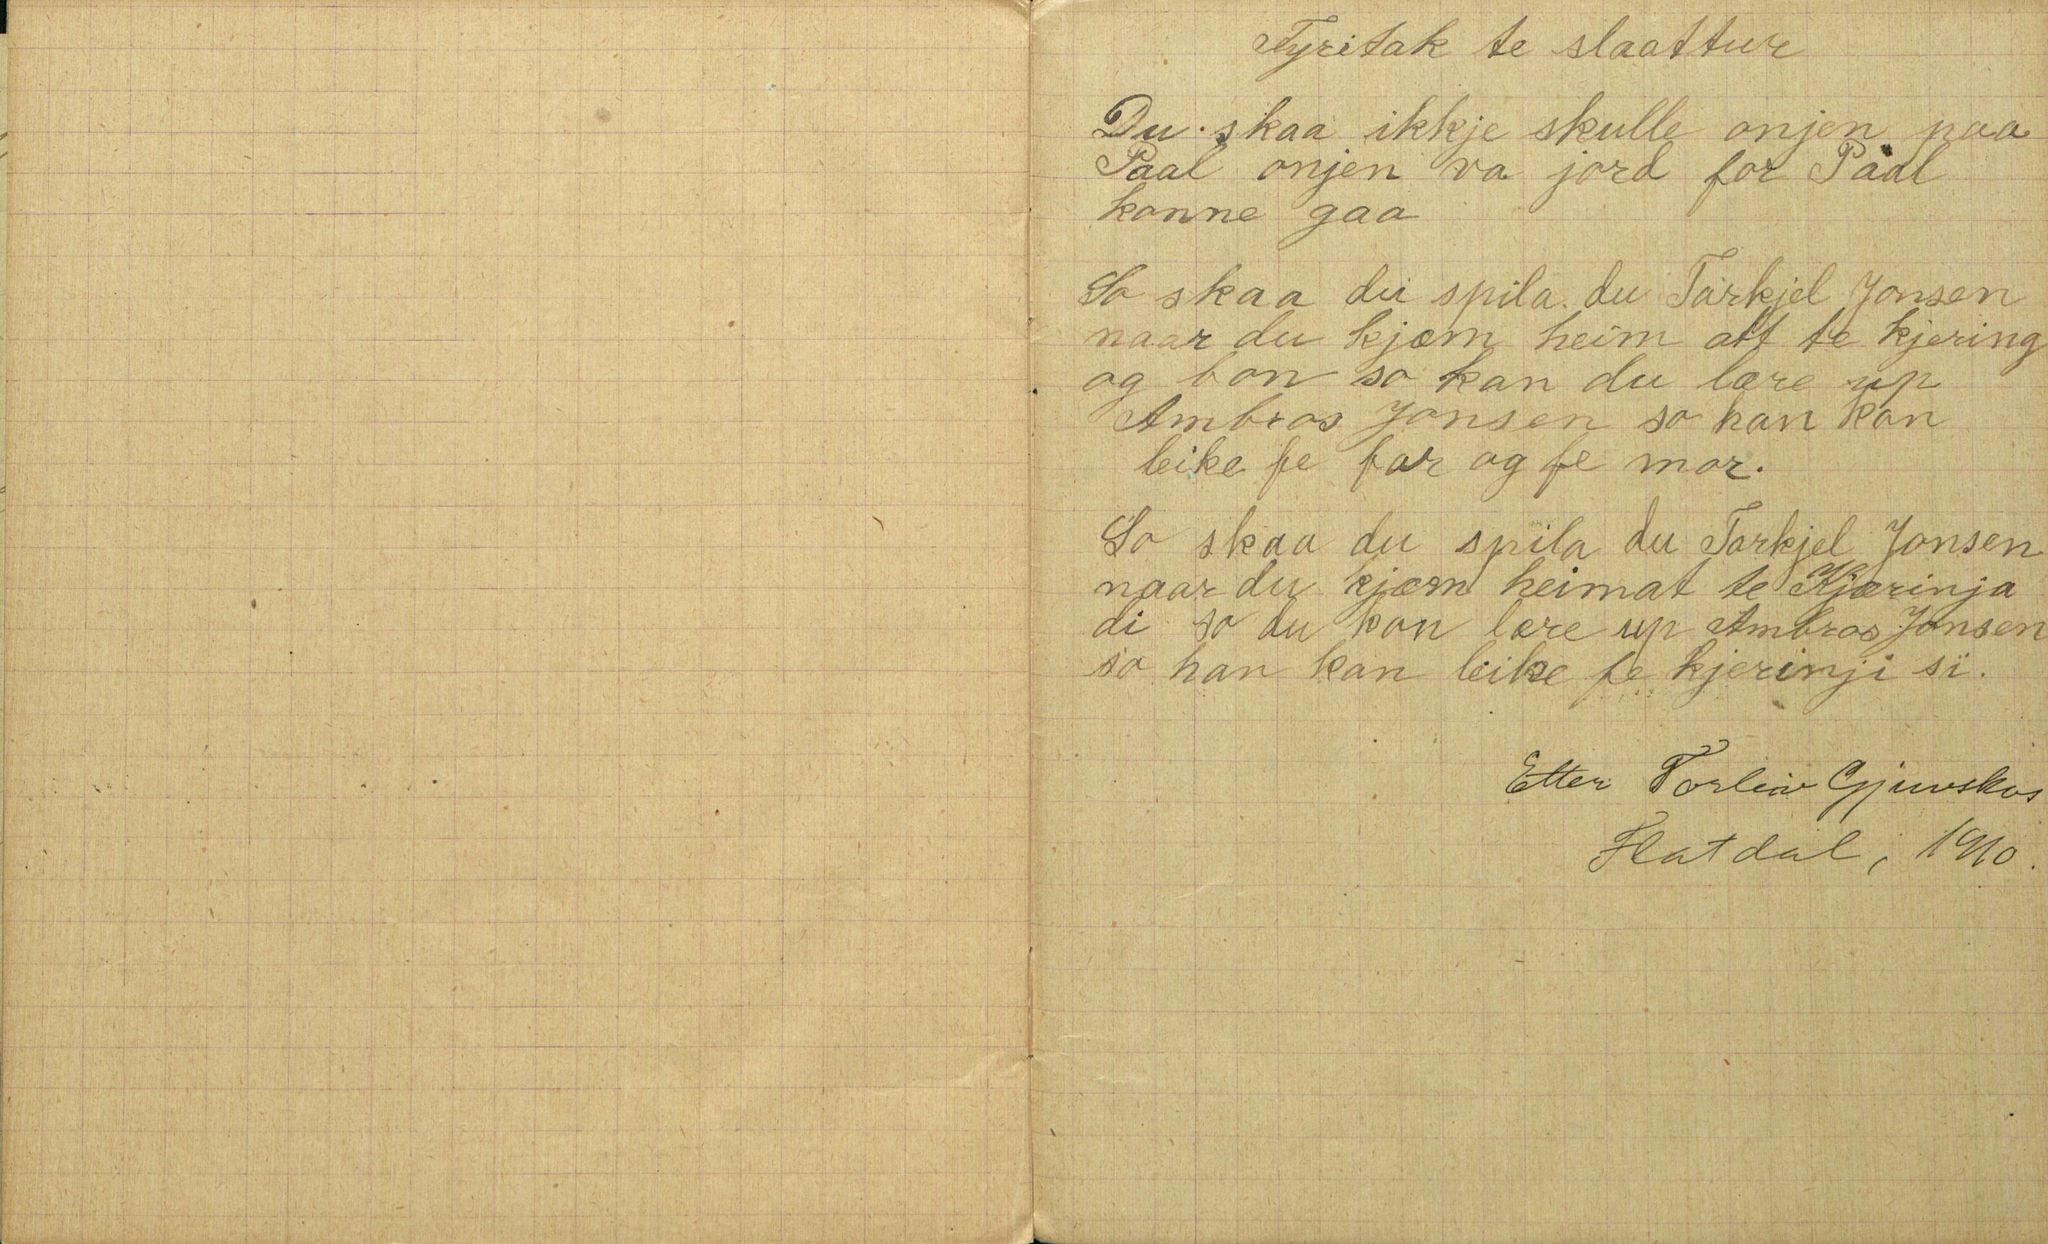 Fyritak te slaattur
Du skaa ikkje skulle onjen paa
Paal onjen va jord for Paal
konne gaa
So skaa du spila du Tarkjel Jonsen
naar du kjæm heim att te kjering
og bon so kan du lære up
Ambros Jonsen so han kan
leike fe far og fe mor.
So skaa du spila du Tarkjel Jonsen
naar du kjæm heimat te Kjæringa
di so du kan lære up Ambros Jonsen
so han kan leike fe kjerinji si.
Etter Torleiv Gjuvskos
Flatdal, 1910.